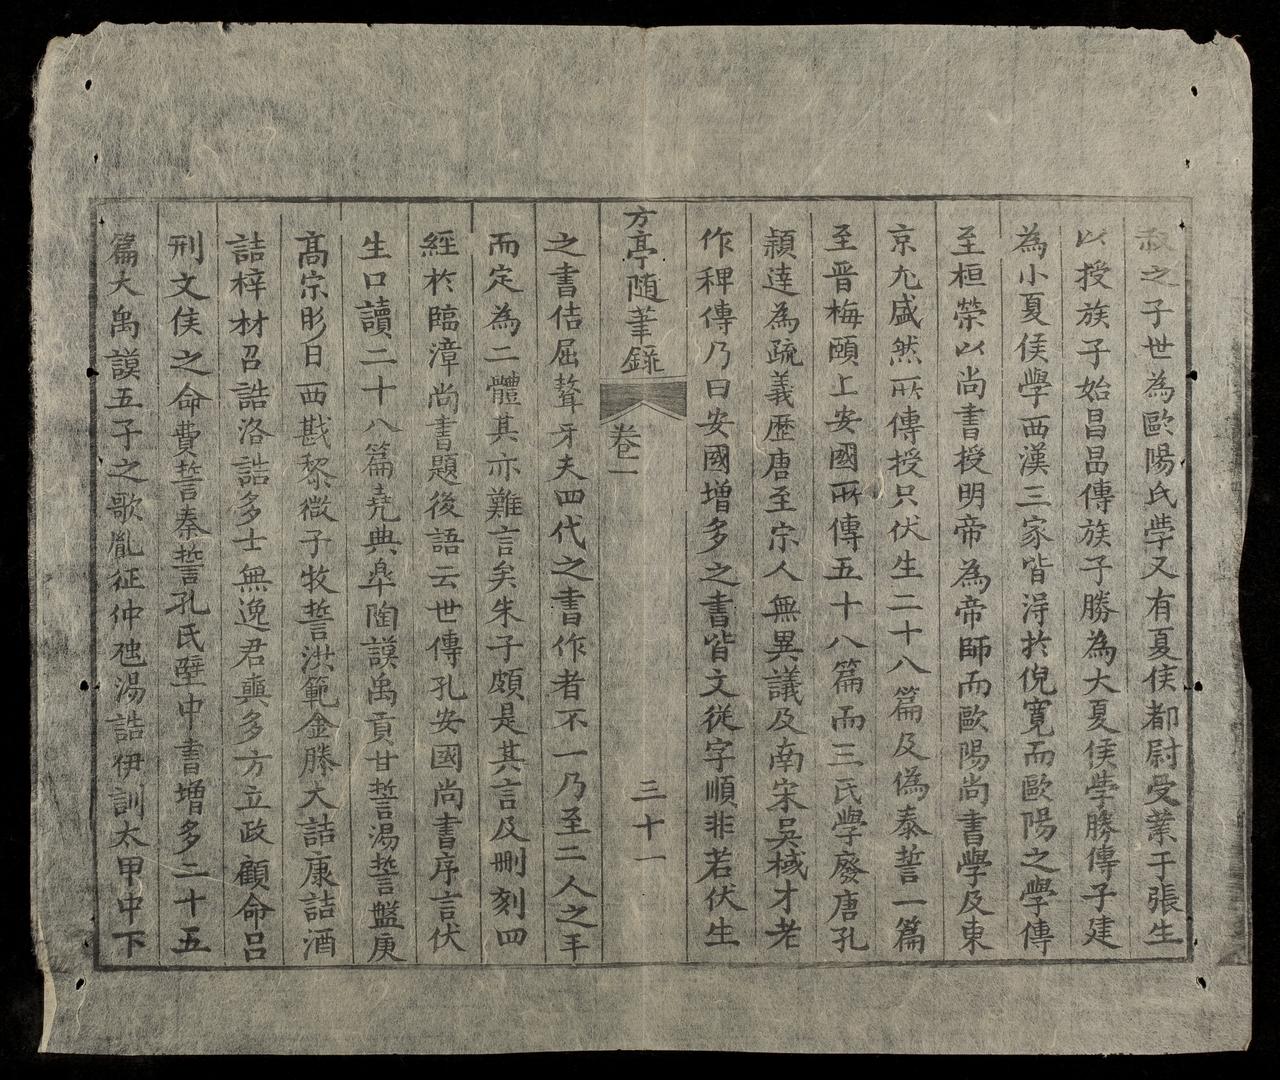 叔之子世為歐陽氏學又有夏侯都尉受業于張生
以授族子始昌昌傳族子勝為大夏侯學勝傳子建
為小夏侯學西漢三家皆淂於倪寬而歐陽之學傳
至桓榮以尚書授明帝為帝師而歐陽尚書學及東
京尤盛然所傳授只伏生二十八篇及偽泰誓一篇
至晋梅頤上安國所傳五十八篇而三氏學廢唐孔
穎達為疏義歷唐至宗人無異議及南宋吳棫才老
作稗傳乃曰安國增多之書皆文從字順非若伏生
方亭随筆錄 卷一 三十一
之書佶屈聱牙夫四代之書作者不一乃至二人之手
而定為二體其亦難言矣朱子頗是其言及刪刻四
經於臨漳尚書題後語云世傳孔安國尚書序言伏
生口讀二十八篇堯典皐陶謨禹貢甘誓湯誓盤庚
高宗肜日西戡黎微子牧誓洪範金縢大誥康誥酒
誥梓材召誥洛誥多士無逸君奭多方立政顧命呂
刑文侯之命費誓秦誓孔氏壁中書增多二十五
篇大禹謨五子之歌胤征仲虺湯誥伊訓太甲中下